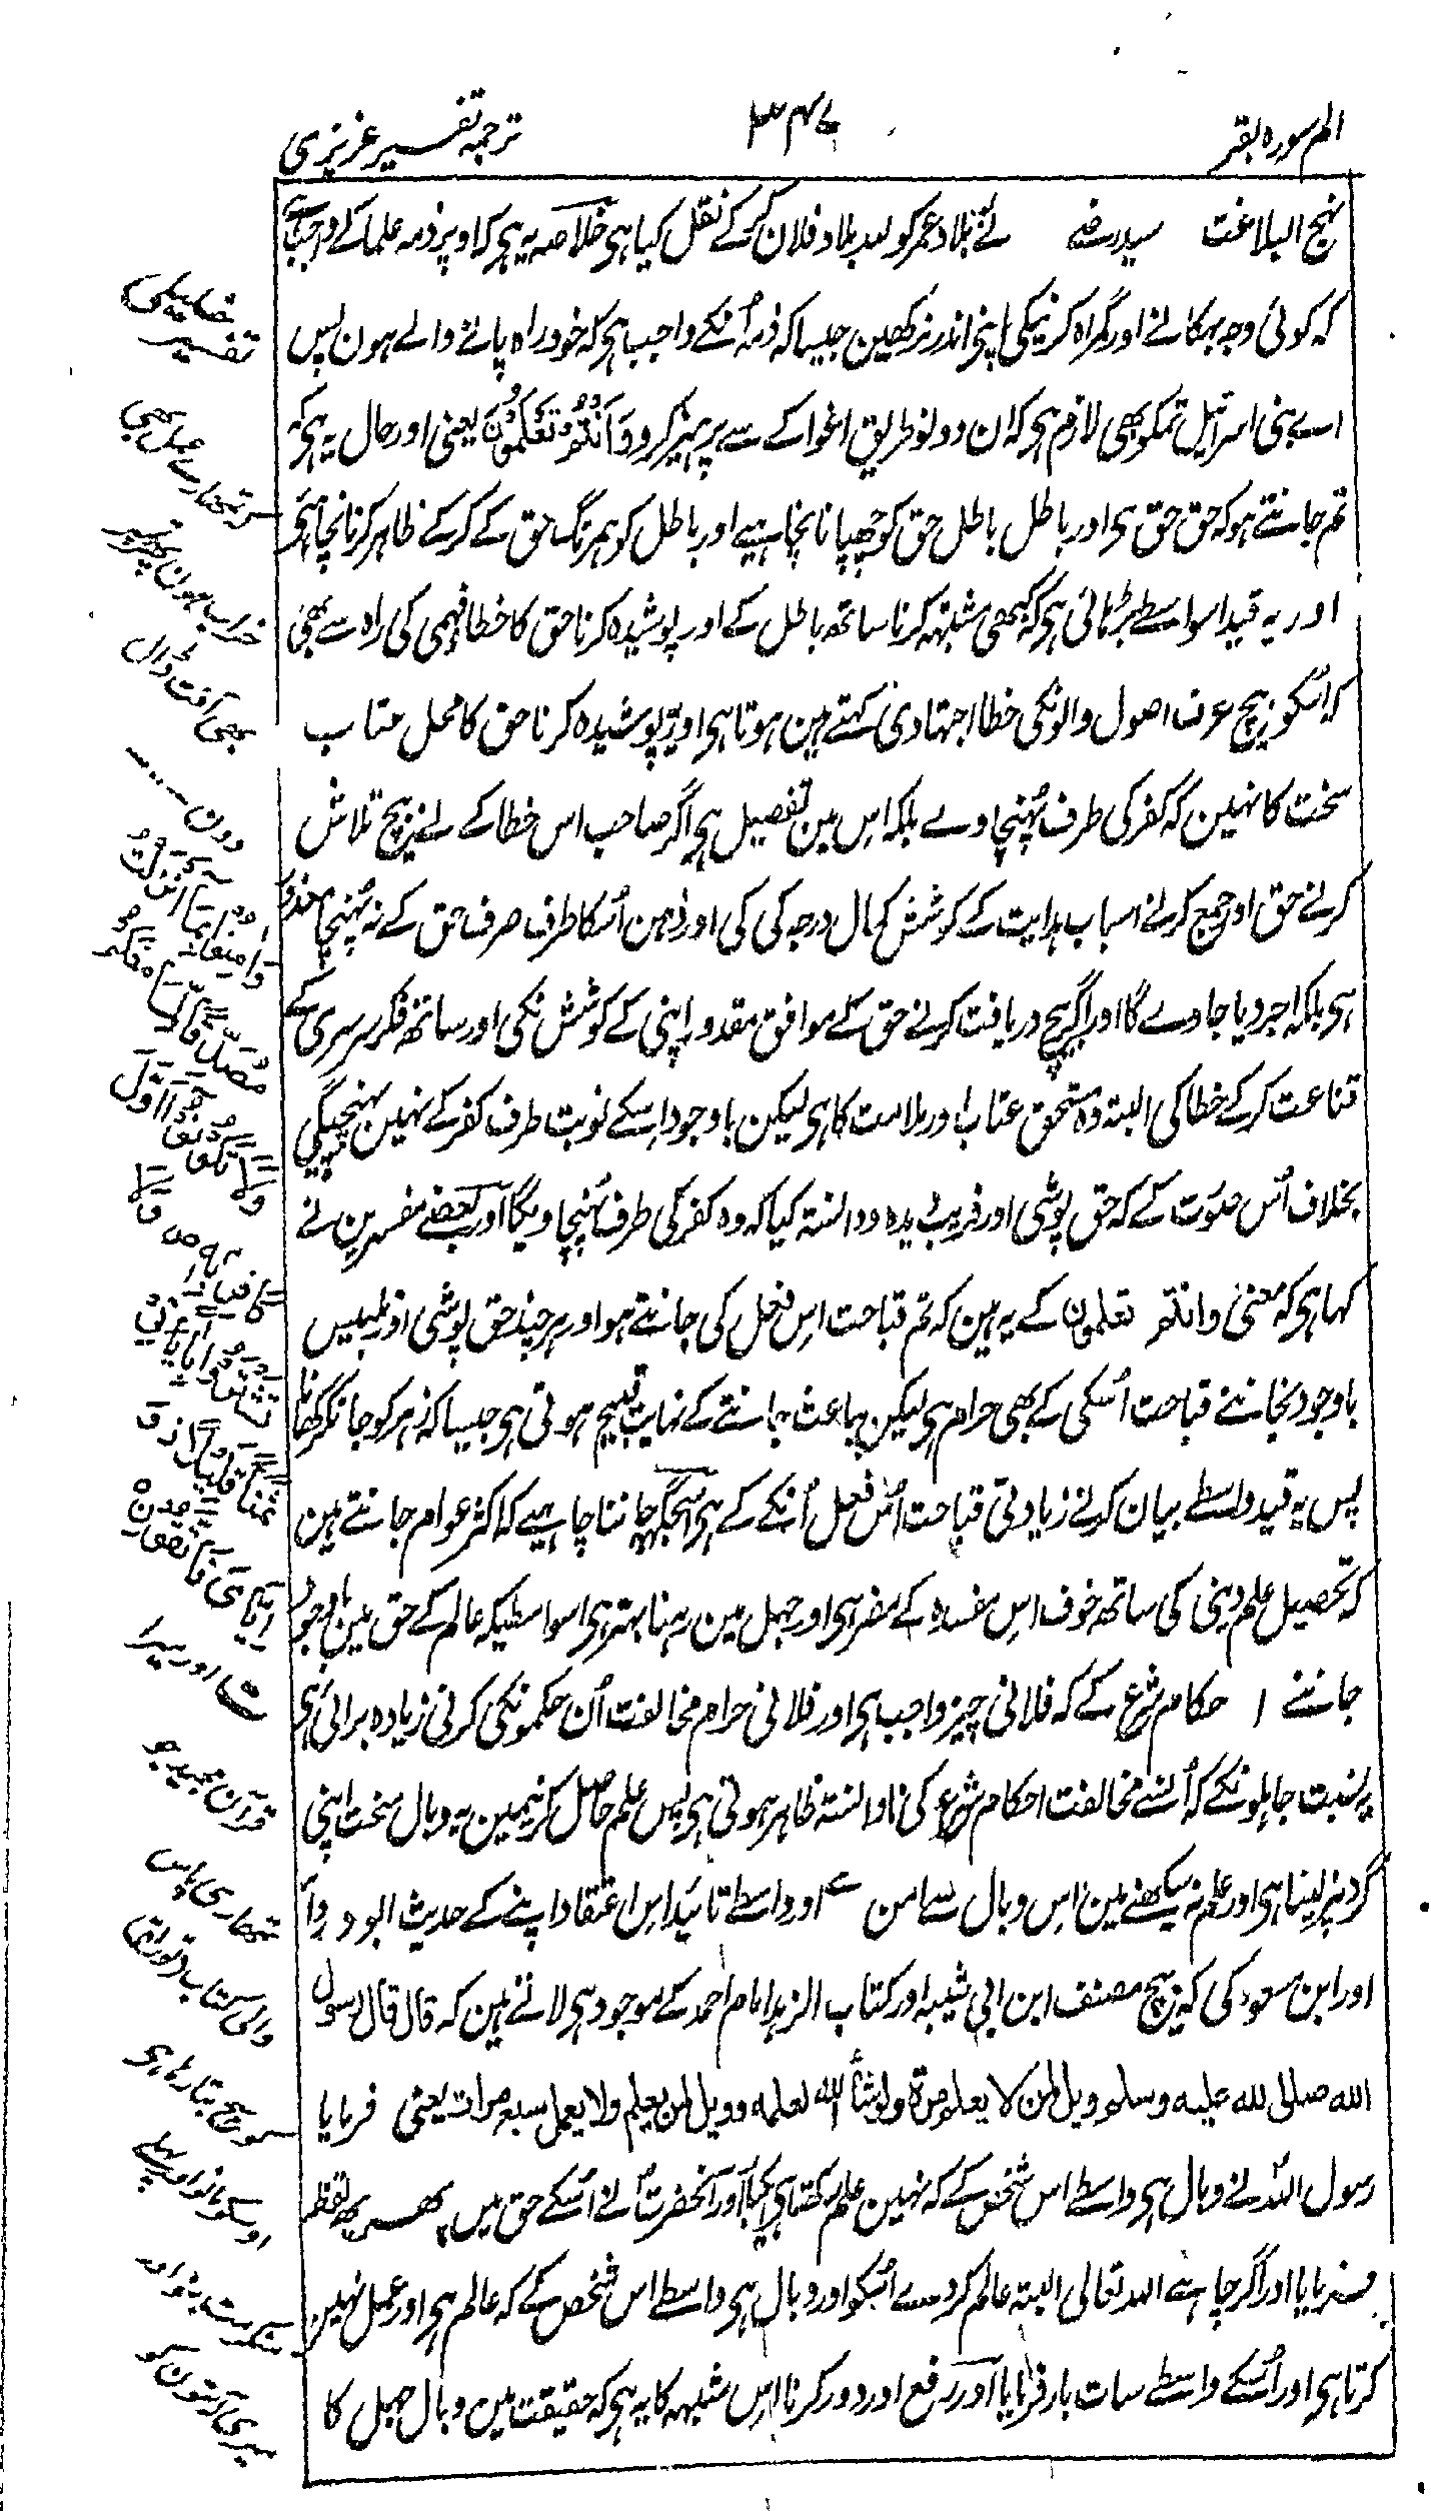 الم سوره بقر
۳۴۷
ترجمہ تفسیر عزیزی
نہج البلاغت سید رضے نے بلاد عمر کو للہ بلاد فلان کرکے نقل کیا ہی خلاصہ یہ ہی کہ اوپر ذمہ علما کے واجب ہے
کہ کوئی وجہ بہکانے اور گمراہ کرنیکی اپنی اندر نرکھین جیسا کہ ذمہ اُنکے واجب ہی کہ خود راہ پانے والے ہون پس
اے بنی اسرائیل تمکو بھی لازم ہی کہ ان دونو طریق اغوا کے سے پرہیز کرو وَاَنْتُمْ تَعْلَمُوْنَ یعنی اور حال یہ ہی کہ
تم جانتے ہو کہ حق حق ہی اور باطل باطل حق کو چھپانا نچاہیے اور باطل کو ہمرنگ حق کے کرکے ظاہر کرنا نچاہئے
اور یہ قید اسواسطے بڑہائی ہی کہ کبھی مشتبہ کرنا ساتھ باطل کے اور پوشیدہ کرنا حق کا خطا فہمی کی راہ سے بھی
کہ اُسکو بیچ عرف اصول والونکی خطا اجتہادی کہتے ہین ہوتا ہی اور پوشیدہ کرنا حق کا محل عتاب
سخت کا نہین کہ کفر کی طرف پُہنچاوے بلکہ اس مین تفصیل ہی اگر صاحب اس خطا کے نے بیچ تلاش
کرنے حق اور جمع کرنے اسباب ہدایت کے کوشش کمال درجہ کی کی اور ذہن اُسکا طرف صرف حق کے نہ پُہنچا معذور
ہی بلکہ اجر دیا جاوے گا اور اگر بیچ دریافت کرنے حق کے موافق مقدور اپنی کے کوشش نکی اور ساتھ فکر سرسری کے
قناعت کرکے خطا کی البتہ وہ مستحق عتاب اور ملامت کا ہی لیکن باوجود اسکے نوبت طرف کفر کے نہین پہنچیگی
بخلاف اُس صورت کے کہ حق پوشی اور فریب دیدہ و دانستہ کیا کہ وہ کفر کی طرف پُہنچاویگا اور بعضے مفسرین نے
کہا ہی کہ معنی وانتم تعلمون کے یہ ہین کہ تم قباحت اس فعل کی جانتے ہو اور ہرچند حق پوشی اور تلبیس
باوجود نجاننے قباحت اُسکی کے بھی حرام ہی لیکن بباعث جاننے کے نہایت قبیح ہوتی ہی جیسا کہ زہر کو جانکر کھانا
پس یہ قید واسطے بیان کرنے زیادتی قباحت اُس فعل اُنکے کے ہی اسجگہہ جاننا چاہیے کہ اکثر عوام جانتے ہین
کہ تحصیل علم دینی کی ساتھ خوف اس مفسدہ کے مضر ہی اور جہل مین رہنا بہتر ہی اسواسطیکہ عالم کے حق مین باوجود
جاننے احکام شرع کے کہ فلانی چیز واجب ہی اور فلانی حرام مخالفت اُن حکمونکی کرنی زیادہ برائی ہی
بہ نسبت جاہلونکے کہ اُنسے مخالفت احکام شرع کی نادانستہ ظاہر ہوتی ہی پس علم حاصل کرنیمین یہ وبال سخت اپنی
گردنپر لینا ہی اور علم نہ سیکھنے مین اس وبال سے امن ہے اور واسطے تائید اس اعتقاد اپنے کے حدیث ابودرداؓ
اور ابن مسعود کی کہ بیچ مصنف ابن ابی شیبہ اور کتاب الزہد امام احمد کے موجود ہی لاتے ہین کہ قال قال رسول
الله صلى الله عليه وسلم ويل لمن لا يعلم مرة ولو شاء الله لعلمه وويل لمن يعلم ولا يعمل سبع مرات یعنی فرمایا
رسول اللہ نے وبال ہی واسطے اس شخص کے کہ نہین علم رکھتا ہی یکبار اور آنحضرت نے اُسکے حق میں پھر یہ لفظ
فرمایا اور اگر چاہے اللہ تعالی البتہ عالم کردے اُسکو اور وبال ہی واسطے اس شخص کے کہ عالم ہی اور عمل نہین
کرتا ہی اور اُسکے واسطے سات بار فرمایا اور رفع اور دور کرنا اس شبہہ کا یہ ہی کہ حقیقت میں وبال جہل کا
تفسیر
سر تمھارے عمل بھی
خراب ہون پھر
بھی آفت ڈال
دون
وَاٰمِنُوْا بِمَا اَنْزَلْتُ
مُصَدِّقًا لِّمَا مَعَكُمْ
وَلَا تَكُوْنُوْا اَوَّلَ
كَافِرٍ بِهٖ وَلَا
تَشْتَرُوْا بِاٰيَاتِيْ
ثَمَنًا قَلِيْلًا وَّ
اِيَّايَ فَاتَّقُوْنِ
اور میرے
قرآن مجید جو
تمھاری پاس
والی کتاب توریت
سچ بتا رہا ہی
اوسکو مانو اور پہلے
منکر مت بنو اور
میری آیتون کو